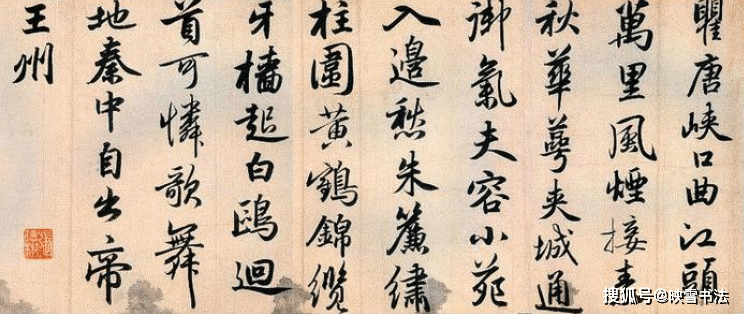 瞿唐峽口曲江頭
萬里風煙接素
秋華萼夾城通
御氣夫容小苑
入邊愁朱簾繡
柱圍黃鶴錦纜
牙檣起白鷗迴
首可憐歌舞
地秦中自古帝
王州
搜狐号@映雪书法